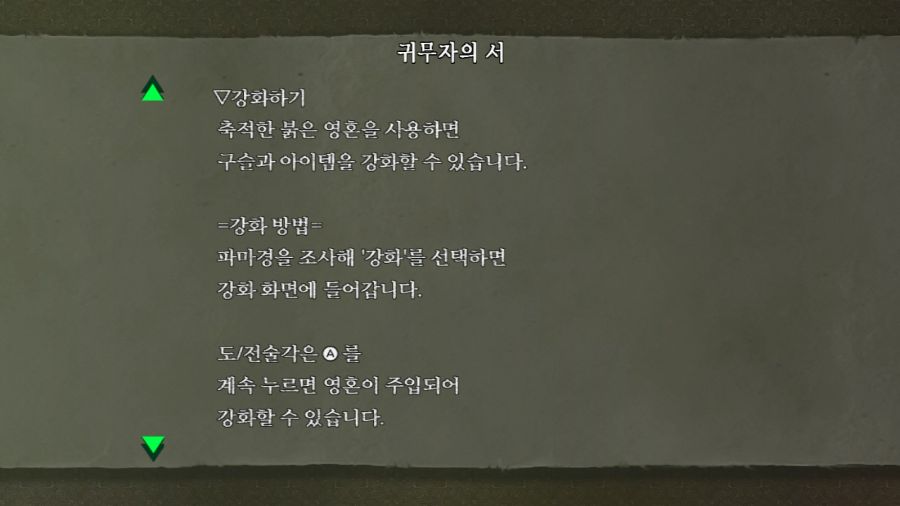 귀무자의 서
▽강화하기
축적한 붉은 영혼을 사용하면
구슬과 아이템을 강화할 수 있습니다.
=강화 방법=
파마경을 조사해 '강화'를 선택하면
강화 화면에 들어갑니다.
도/전술각은 Ⓐ 를
계속 누르면 영혼이 주입되어
강화할 수 있습니다.